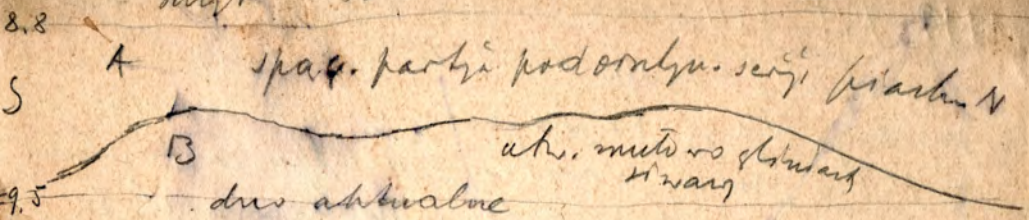 8.8
A spąg. partji podornlju. serji piasku N
S
B utw. mułowo gliniast
siwawy
9.5 dno aktualne